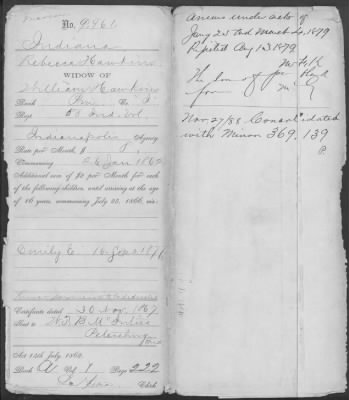 No. 9461
Indiana
Rebecca Hawkins
WIDOW OF
William Hawkins
Rank Priv. Co. I
Regt 58 Ind. Vol.
Indianapolis Agency
Rate per Month, 8
Commencing 26 Jan 1862
Additional sum of $2 per Month for each
of the following children, until arriving at the age
of 16 years, commencing July 25, 1866, viz:
Emily E. 16 Sep 1876
Certificate dated 20 Nov. 1867
Sent to
Petersburg
Ind
Act 14th July, 1862.
Book A Vol. 1 Page 222
Clerk
Arrears under acts of
Jany 25 and March 3, 1879
Reptd Aug 13 1879
Nov 27/88 Consolidated
with Minor 369.139
P.